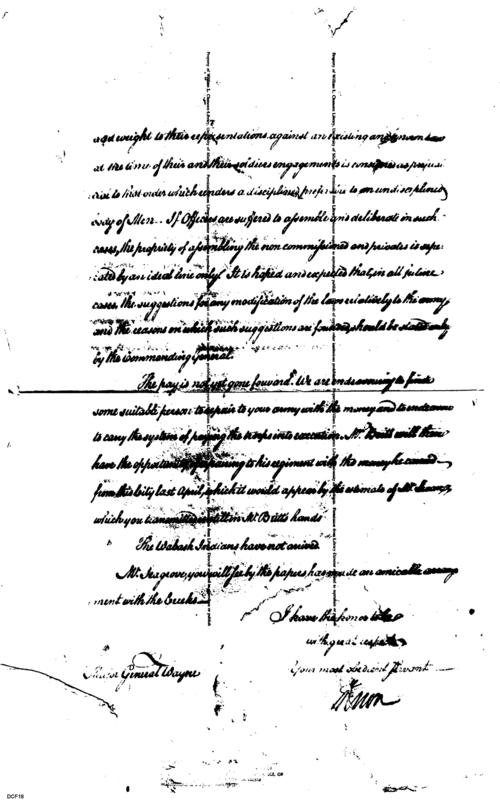 and weight to their representations against an existing and known law
at the time of their and their soldiers engagements is considered as prejudi
cial to that order which renders a disciplined preferable to an undisciplined
body of Men.. If Officers are suffered to assemble and deliberate in such
cases, the propriety of assembling the non commissioned and privates is sepa
rated by an ideal line only. It is hoped and expected that, in all future
cases, the suggestions for any modification of the laws relatively to the army,
and the reasons on which such suggestions are founded, should be stated only
by the Commanding General.
The pay is not yet gone forward. We are endeavoring to find
some suitable person to repair to your army with the money and to endeavor
to carry the system of paying the troops into execution. Mr. Britt will then
have the opportunity of repairing to his regiment with the money he carried
from this City last April, which it would appear by the estimate of Mr.
which you transmitted is still in Mr. Britts hands
The Wabash Indians have not arrived
Mr. Seagrove, you will see by the papers has made an amicable arrange
ment with the Creeks—
I have the honor to be
with great respect
Your most obedient Servant
Major General Wayne
HKnox
DCF18